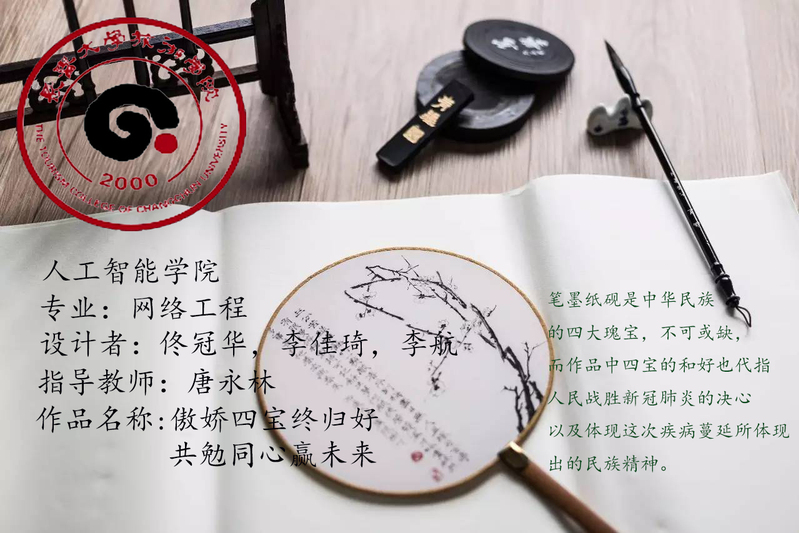 长春大学旅游学院
THE TOURISM COLLEGE OF CHANGCHUN UNIVERSITY
2000
人工智能学院
专业：网络工程
设计者：佟冠华，李佳琦，李航
指导教师：唐永林
作品名称:傲娇四宝终归好
共勉同心赢未来
笔墨纸砚是中华民族
的四大瑰宝，不可或缺，
而作品中四宝的和好也代指
人民战胜新冠肺炎的决心
以及体现这次疾病蔓延所体现
出的民族精神。